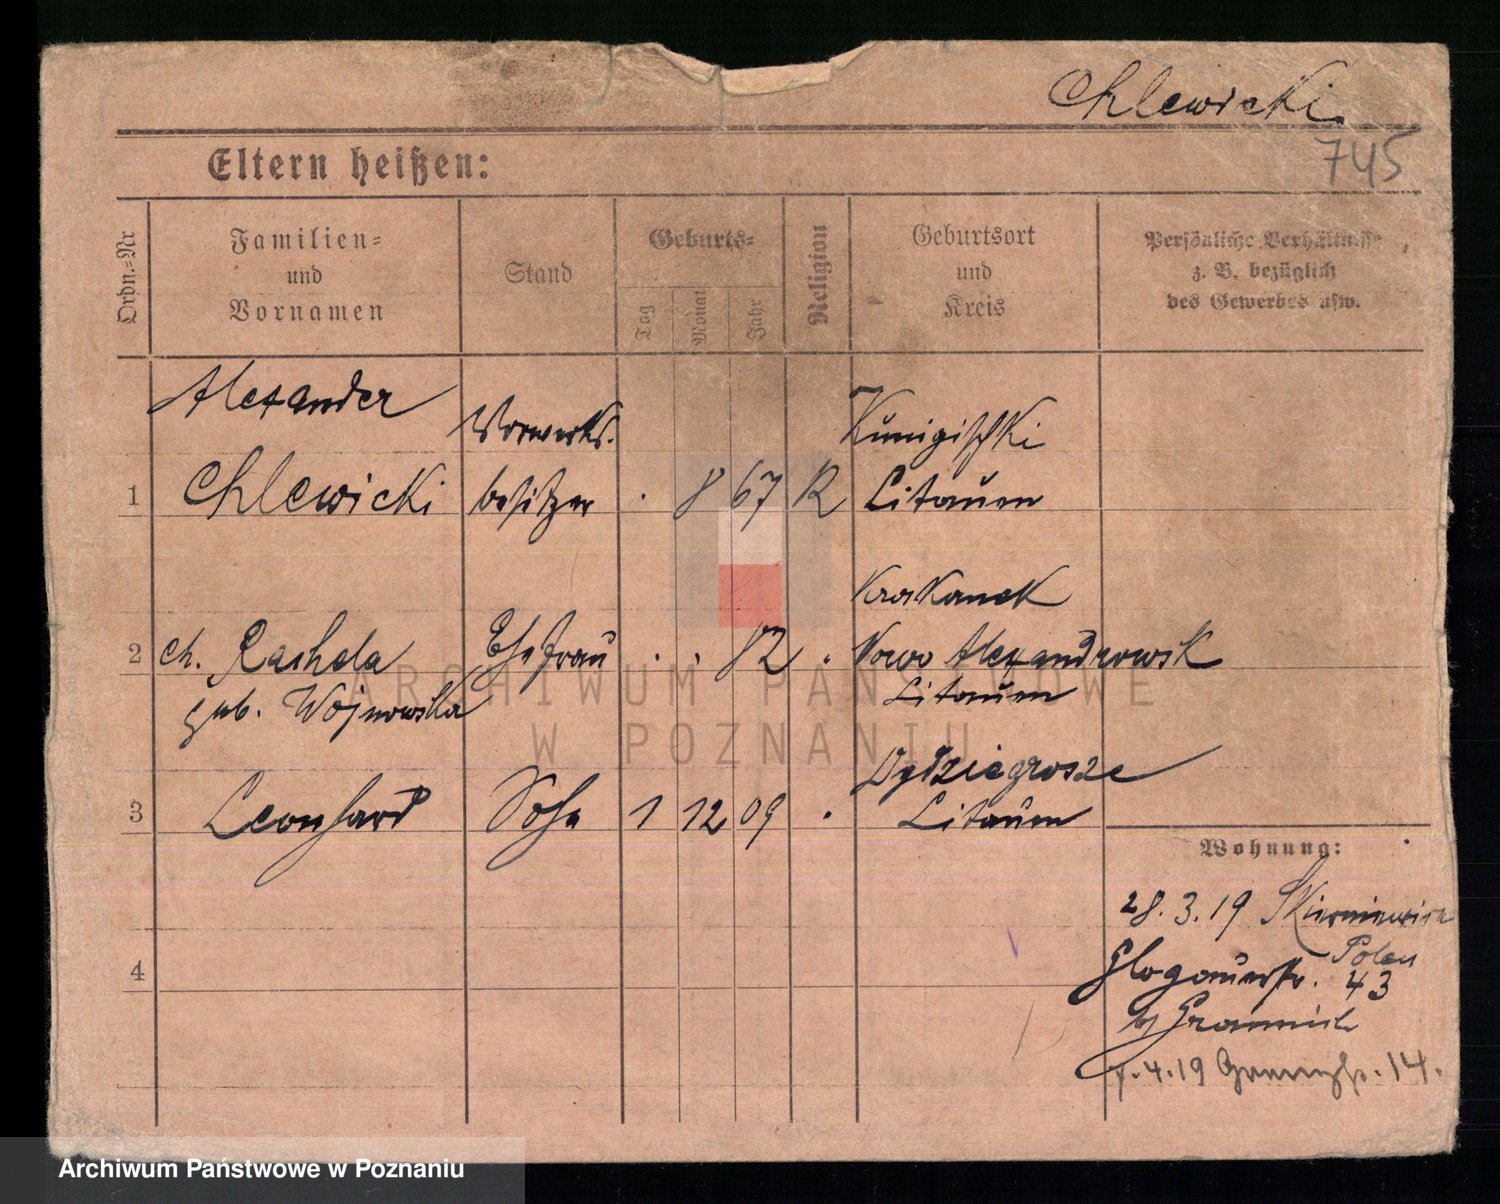 Chlewicki.
745
Eltern heißen:
Ordn.=Nr
Familien=
und
Vornamen
Stand
Geburts=
Tag
Monat
Jahr
Religion
Geburtsort
und
Kreis
Persönliche Verhältnisse
z. B. bezüglich
des Gewerbes usw.
Alexander
Chlewicki
Vorwerks.
besitzer
1 . 8 67 R
Kunigischki
Litauen
2 Ch. Rachela
geb. Wojnowska
Ehefrau . . 82 .
Krakanek
Nowo Alexandrowsk
Litauen
3 Leonhard Sohn 1 12 09 .
Dydziegrosze
Litauen
4
Wohnung:
28. 3. 19 Skierniewice
Polen
Glogauerstr. 43
7. 4. 19 14.
ARCHIWUM PAŃSTWOWE
W POZNANIU
Archiwum Państwowe w Poznaniu